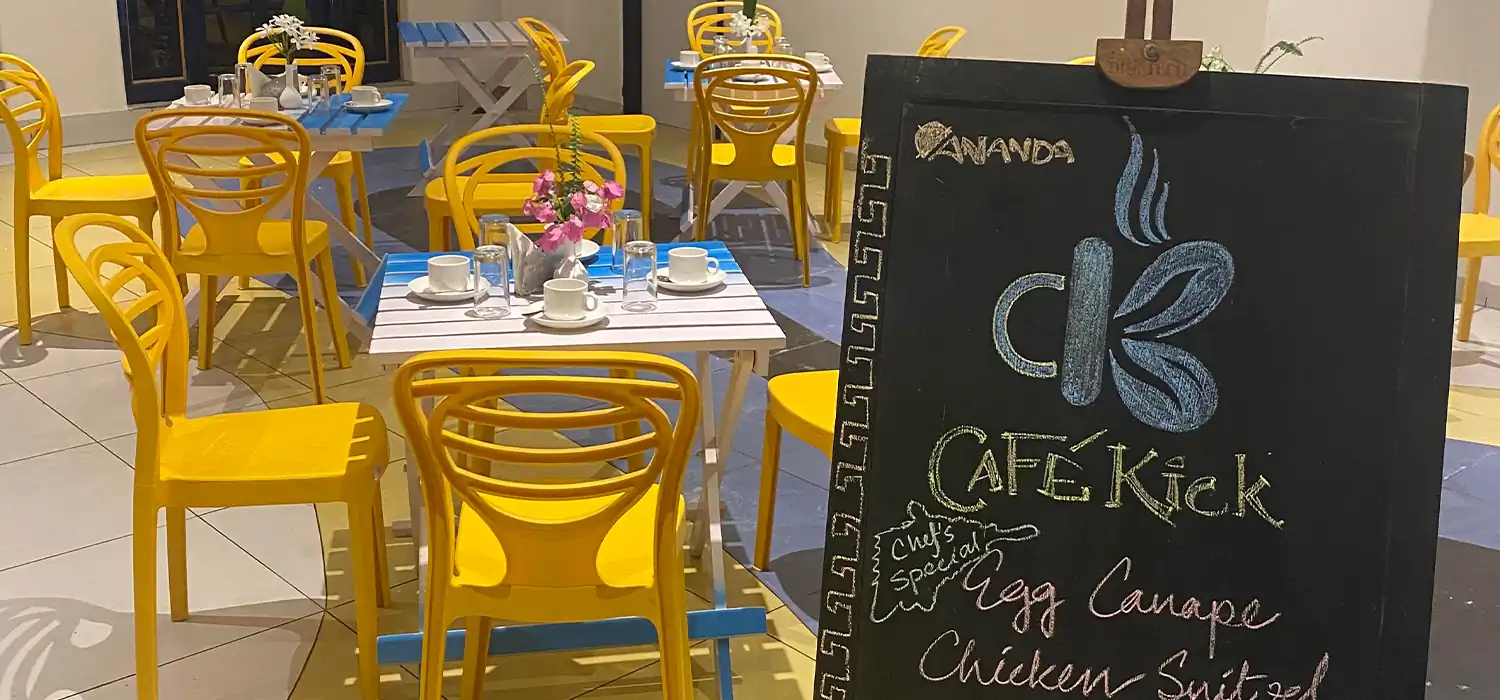 ANANDA
CK
CAFÉ Kick
Chef's
Special
Egg Canape
Chicken Snitzel